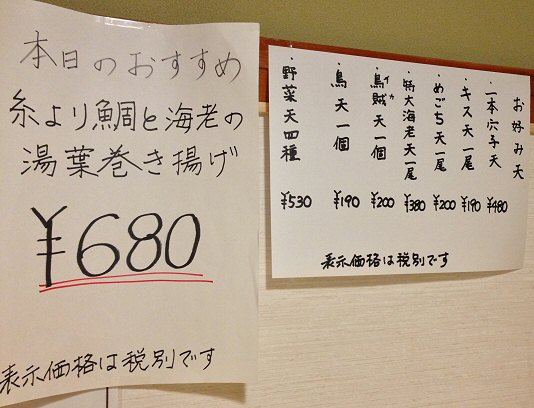 本日のおすすめ
糸より鯛と海老の
湯葉巻き揚げ
¥680
表示価格は税別です
お好み天
・一本穴子天 ¥480
・キス天一尾 ¥190
・めごち天一尾 ¥200
・特大海老天一尾 ¥380
・烏賊天一個 ¥200
イカ
・鳥天一個 ¥190
・野菜天四種 ¥530
表示価格は税別です